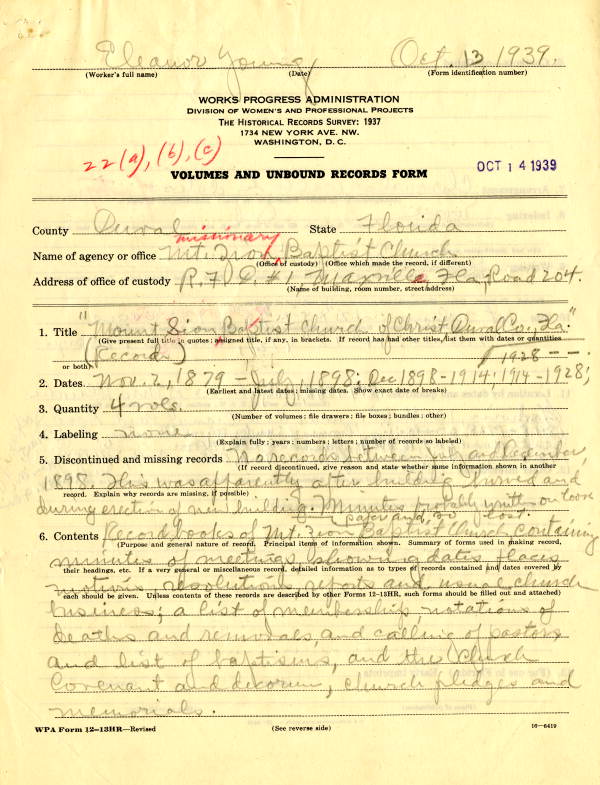 Eleanor Young Oct. 13 1939.
(Worker's full name) (Date) (Form identification number)
WORKS PROGRESS ADMINISTRATION
DIVISION OF WOMEN'S AND PROFESSIONAL PROJECTS
THE HISTORICAL RECORDS SURVEY: 1937
1734 NEW YORK AVE. NW.
WASHINGTON, D. C.
22(a), (b), (c)
OCT 14 1939
VOLUMES AND UNBOUND RECORDS FORM
County Duval State Florida
missionary
Name of agency or office Mt. Zion, Baptist Church
(Office of custody) (Office which made the record, if different)
Address of office of custody R. F. D. #1 Maxville, Fla., Road 204.
(Name of building, room number, street address)
1. Title "Mount Sion Baptist Church of Christ Duval Co., Fla."
(Give present full title in quotes; assigned title, if any, in brackets. If record has had other titles, list them with dates or quantities
or both) (Records) 1928 --
2. Dates Nov. 2, 1879 - July, 1898; Dec 1898-1914; 1914-1928;
(Earliest and latest dates; missing dates. Show exact date of breaks)
3. Quantity 4 vols.
(Number of volumes; file drawers; file boxes; bundles; other)
4. Labeling none
(Explain fully; years; numbers; letters; number of records so labeled)
5. Discontinued and missing records No records between July and December,
(If record discontinued, give reason and state whether same information shown in another
1898. This was apparently after building burned and
record. Explain why records are missing, if possible)
during erection of new building. Minutes probably written on loose
paper and, so lost.
6. Contents Record books of Mt. Zion Baptist Church containing
(Purpose and general nature of record. Principal items of information shown. Summary of forms used in making record,
minutes of meetings showing dates places
their headings, etc. If a very general or miscellaneous record, detailed information as to types of records contained and dates covered by
motions resolutions, reports and usual church
each should be given. Unless contents of these records are described by other Forms 12-13HR, such forms should be filled out and attached)
business; a list of membership, notations of
deaths and removals, and calling of pastors
and list of baptisms, and the Church
Covenant and decorum, church pledges and
memorials.
WPA Form 12-13HR—Revised (See reverse side) 16-6419